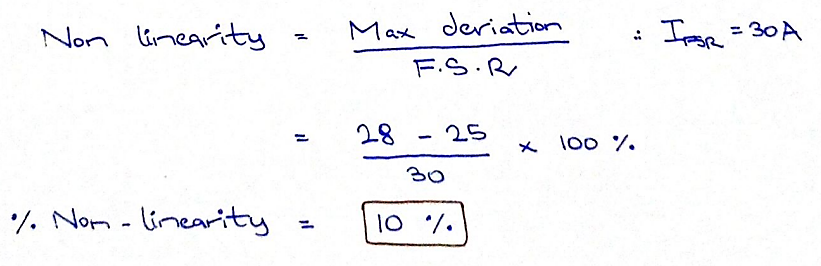 Non linearity = Max deviation / F.S.R ∴ I_FSR = 30A
= 28 - 25 / 30 × 100 %
% Non-linearity = 10 %